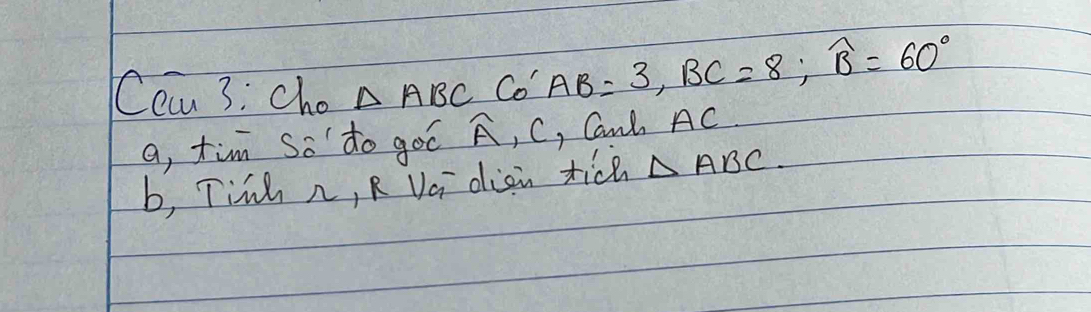 Câu 3: Cho Δ ABC Có AB = 3, BC = 8; B̂ = 60°
a, tìm số đo góc Â, C, Cạnh AC.
b, Tính r, R Và diện tích Δ ABC.